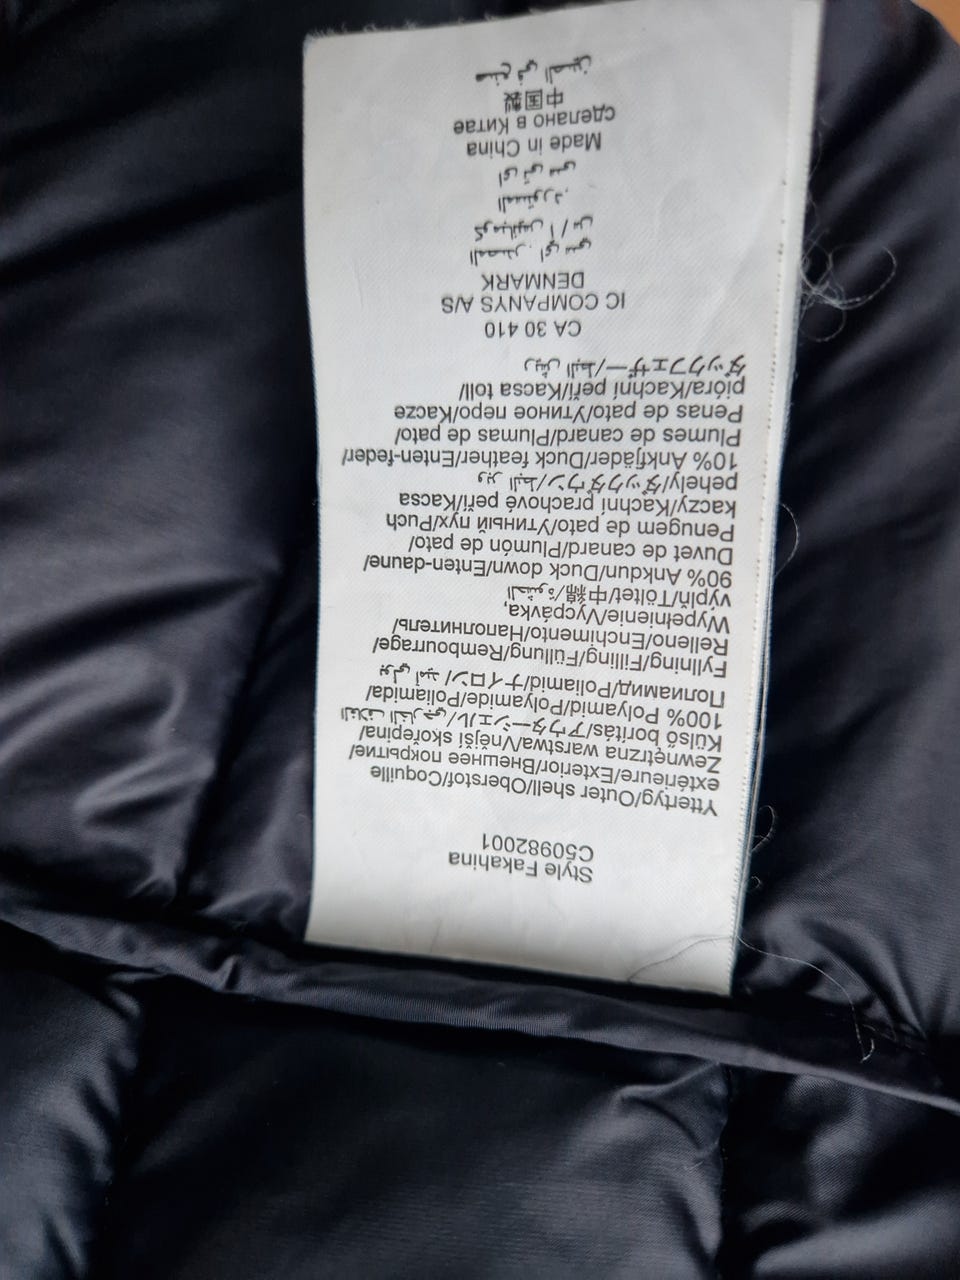 Style Fakahina
C50982001
Yttertyg/Outer shell/Oberstof/Coquille
extérieure/Exterior/Внешнее покрытие/
Zewnętrzna warstwa/Vnější skořepina/
Külső borítás/アウターシェル/الغلاف الخارجي
100% Polyamid/Polyamide/Poliamida/
Полиамид/Poliamid/ナイロン/بولي أميد
Fyllning/Filling/Füllung/Rembourrage/
Relleno/Enchimento/Наполнитель/
Wypełnienie/Vycpávka,
výplň/Töltet/中綿/الحشوة
90% Ankdun/Duck down/Enten-daune/
Duvet de canard/Plumón de pato/
Penugem de pato/Утиный пух/Puch
kaczy/Kachní prachové peří/Kacsa
pehely/ダックダウン/وبر البط
10% Ankfjäder/Duck feather/Enten-feder/
Plumes de canard/Plumas de pato/
Penas de pato/Утиное перо/Kacze
pióra/Kachní peří/Kacsa toll/
ダックフェザー/ريش البط
CA 30 410
IC COMPANYS A/S
DENMARK
المصدر: آي سي
كومبانيس أ/س
المستورد:
آي تي سي
Made in China
сделано в Китае
中国製
صنع في الصين